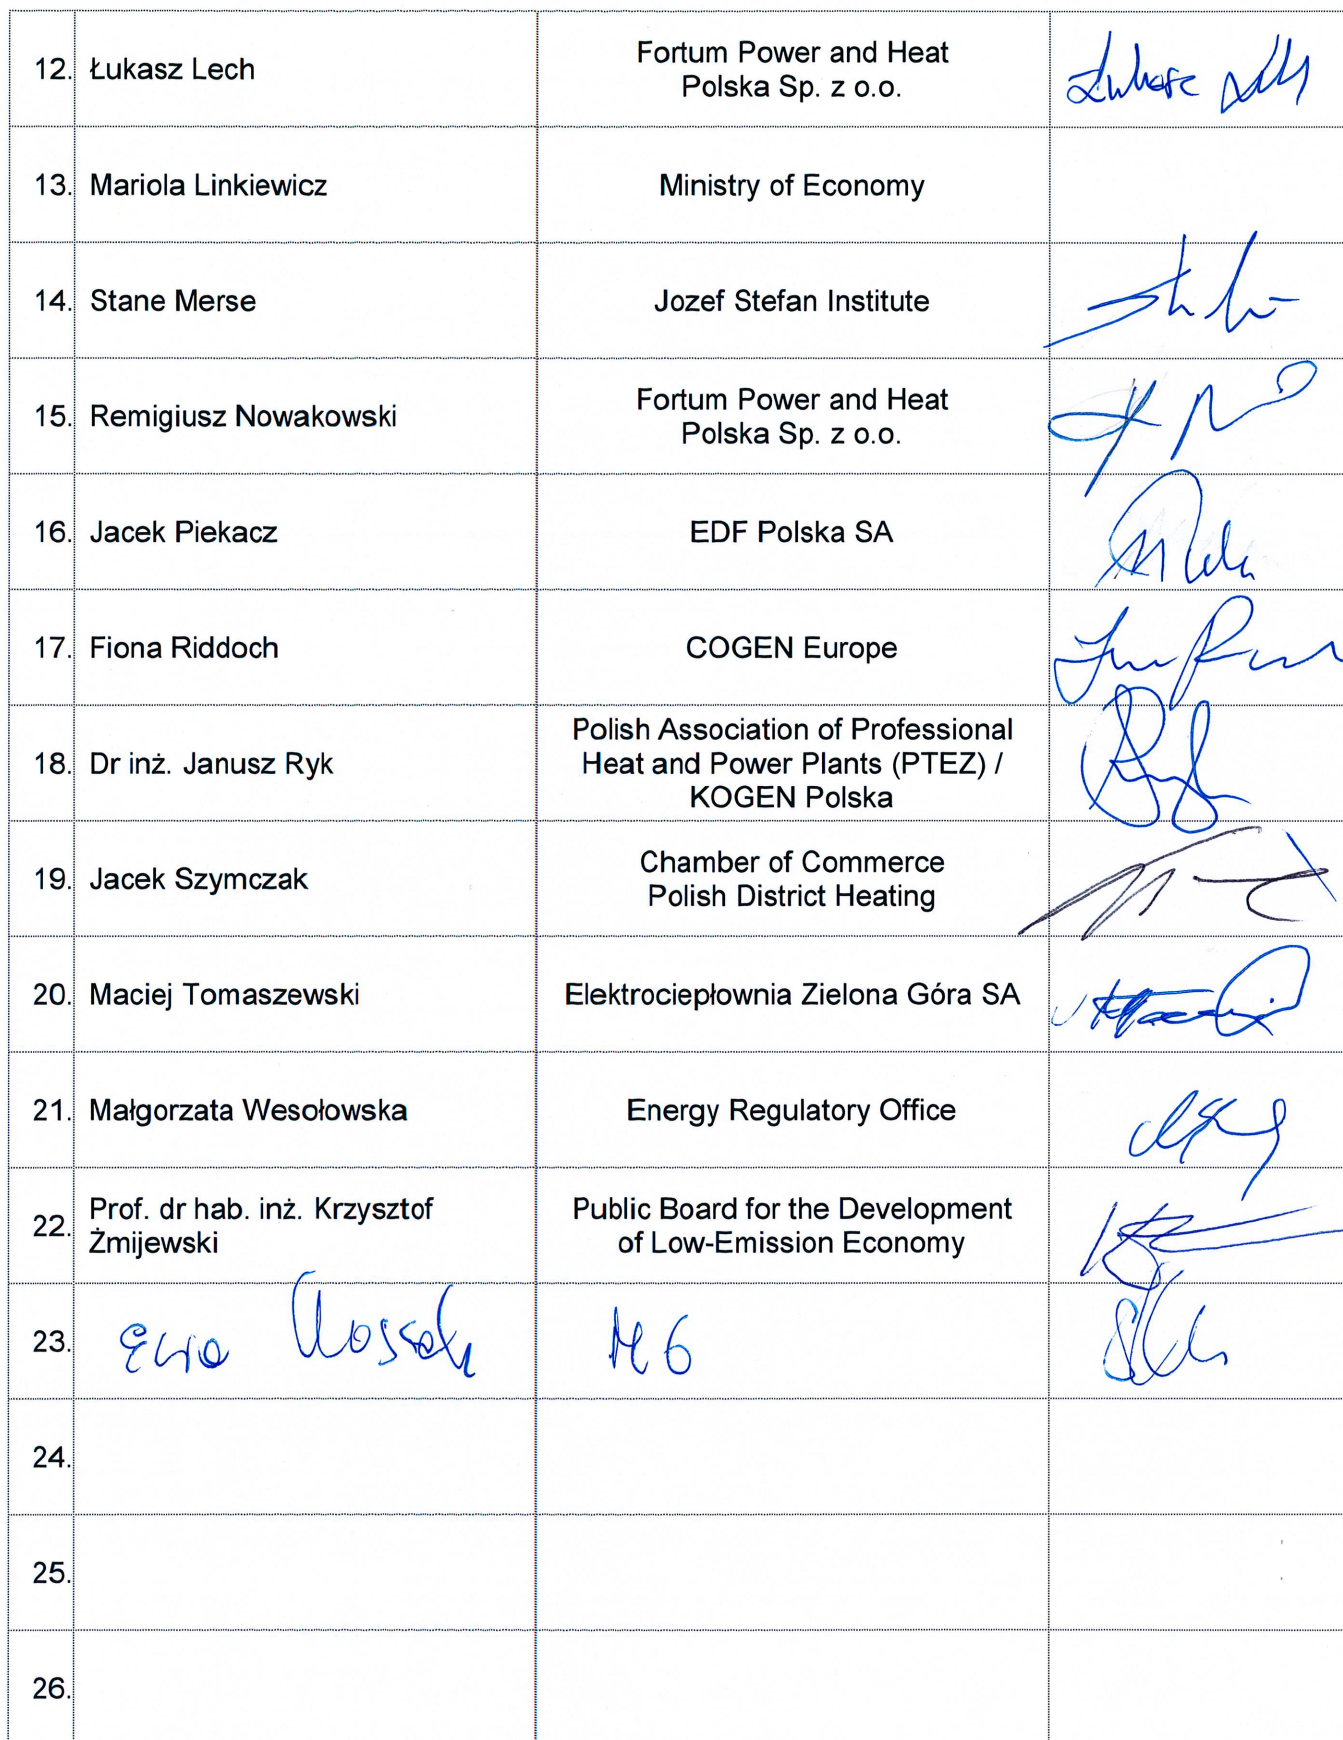 12. Łukasz Lech
Fortum Power and Heat
Polska Sp. z o.o.
Łukasz Lech
13. Mariola Linkiewicz
Ministry of Economy
14. Stane Merse
Jozef Stefan Institute
15. Remigiusz Nowakowski
Fortum Power and Heat
Polska Sp. z o.o.
16. Jacek Piekacz
EDF Polska SA
17. Fiona Riddoch
COGEN Europe
18. Dr inż. Janusz Ryk
Polish Association of Professional
Heat and Power Plants (PTEZ) /
KOGEN Polska
19. Jacek Szymczak
Chamber of Commerce
Polish District Heating
20. Maciej Tomaszewski
Elektrociepłownia Zielona Góra SA
21. Małgorzata Wesołowska
Energy Regulatory Office
22. Prof. dr hab. inż. Krzysztof
Żmijewski
Public Board for the Development
of Low-Emission Economy
23. Ewa
24.
25.
26.